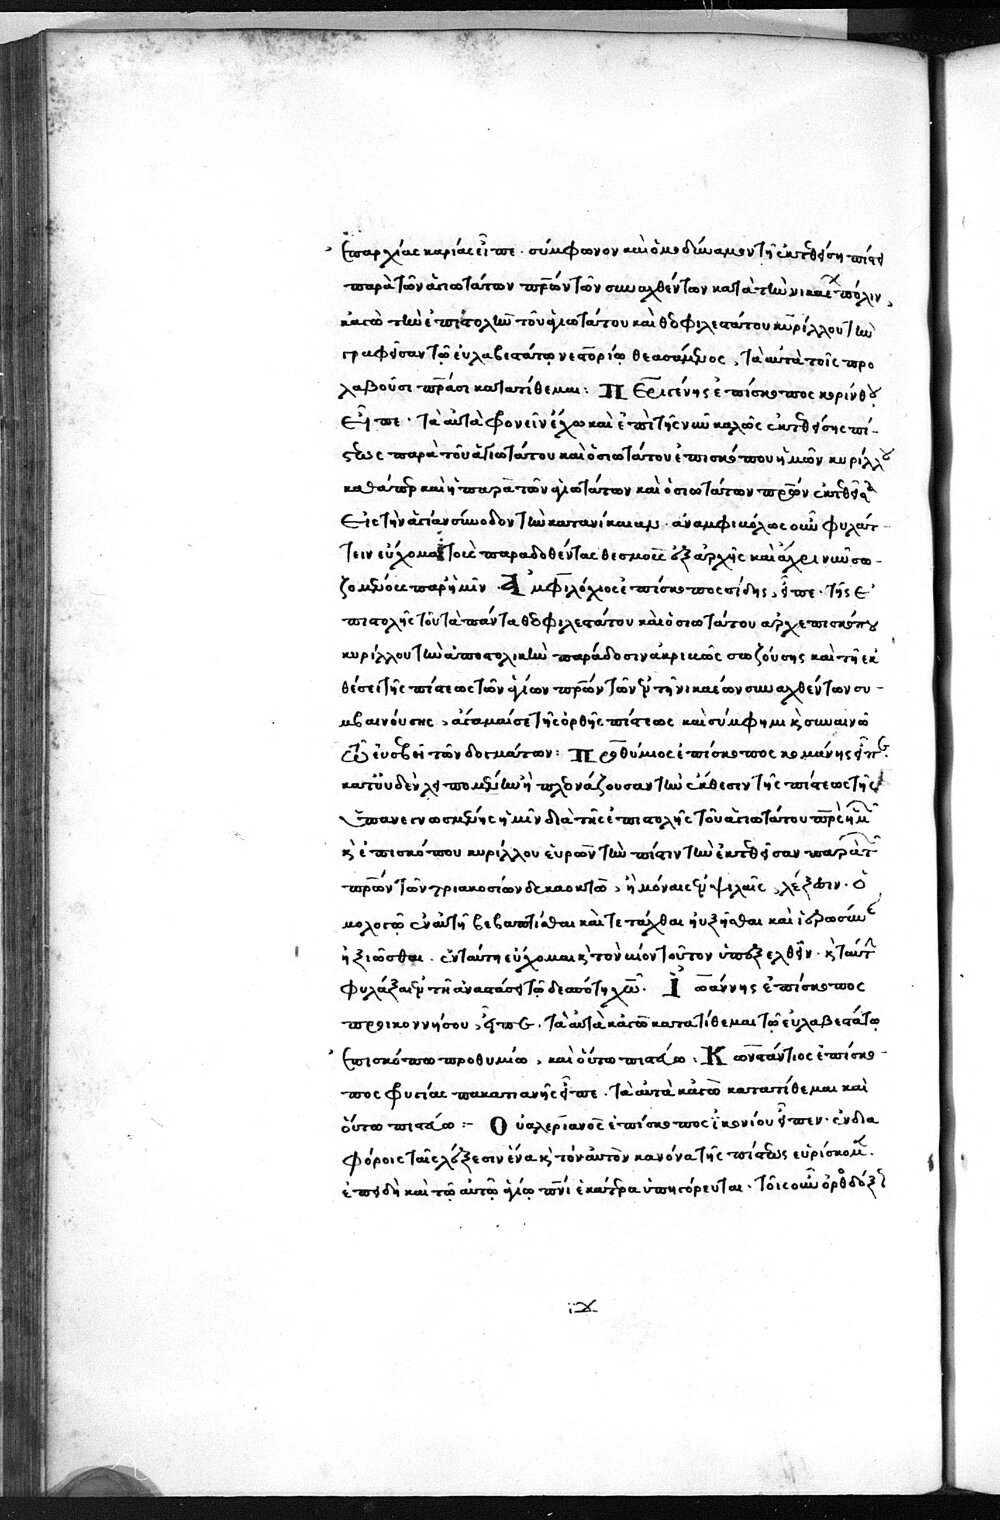 ἐπαρχίας καρίας εἶπε · σύμφωνον καὶ ὁμοδύναμον τῆ ἐκτεθείση πίστει
παρὰ τῶν ἁγιωτάτων πρῶν τῶν συναχθέντων κατὰ τὴν νικαέων πόλιν,
κἀγὼ τὴν ἐπιστολὴν τοῦ ἁγιωτάτου καὶ θεοφιλεστάτου κυρίλλου τὴν
γραφεῖσαν τῶ εὐλαβεστάτω νεστορίω θεασάμενος, τὰ αὐτὰ τοῖς προ
λαβοῦσι πράσι κατατίθεμαι: Περιγένης ἐπίσκοπος κορίνθου
εἶπε · τὰ αὐτὰ φρονεῖν ἔχω καὶ ἐπὶ τῆς νῦν καλῶς ἐκτεθείσης πί-
στεως παρὰ τοῦ ἁγιωτάτου καὶ ὁσιωτάτου ἐπισκόπου ἡμῶν κυρίλλου
καθάπερ καὶ ἡ παρὰ τῶν ἁγιωτάτων καὶ ὁσιωτάτων πρῶν ἐκτεθεῖσα
εἰς τὴν ἁγίαν σύνοδον τὴν κατὰ νίκαιαν · ἀναμφιβόλως οὖν φυλάτ-
τειν εὔχομαι τοὺς παραδοθέντας θεσμοὺς ἐξ ἀρχῆς καὶ ἄχρι νῦν σω-
ζομένους παρ' ἡμῖν · Ἀμφιλόχιος ἐπίσκοπος σίδης, εἶπε · τῆς ἐ
πιστολῆς τοῦ τὰ πάντα θεοφιλεστάτου καὶ ὁσιωτάτου ἀρχιεπισκόπου
κυρίλλου τὴν ἀποστολικὴν παράδοσιν ἀκριβῶς σωζούσης καὶ τῆ ἐκ
θέσει τῆς πίστεως τῶν ἁγίων πρῶν τῶν ἐν τῆ νικαέων συναχθέντων συ-
μβαινούσης, ἄγαμαί σε τῆς ὀρθῆς πίστεως καὶ σύμφημι κ συναινῶ
τῶ εὐσεβεῖ τῶν δογμάτων: Προθύμιος ἐπίσκοπος κομάνης εἶπε
κατ' οὐδὲν λειπομένην ἢ πλεονάζουσαν τὴν ἔκθεσιν τῆς πίστεως τῆς
ἐπανεγνωσμένης ἡμῖν διὰ τῆς ἐπιστολῆς τοῦ ἁγιωτάτου πρς ἡμῶν
κ ἐπισκόπου κυρίλλου εὑρὼν τὴν πίστιν τὴν ἐκτεθεῖσαν παρὰ τῶν
πρῶν τῶν τριακοσίων δεκαοκτὼ, ἢ μόναις ἐν ψιλαῖς λέξεσιν · ὁ
μολογῶ ἐν αὐτῆ βεβαπτίσθαι καὶ τετάχθαι ηὐξῆσθαι καὶ ἱερωσύνης
ἠξιῶσθαι · ἐν ταύτη εὔχομαι κ τὸν βίον τοῦτον ὑπεξελθεῖν · κ ταύτην
φυλάξαι ἐν τῆ ἀναστάσει τῶ δεσπότη χῶ · Ἰωάννης ἐπίσκοπος
προικοννήσου, εἶπε · τὰ αὐτὰ κἀγὼ κατατίθεμαι τῶ εὐλαβεστάτω
ἐπισκόπω προθυμίω, καὶ οὕτω πιστεύω · Κωνστάντιος ἐπίσκο-
πος φυσίας πακατιανῆς εἶπε · τὰ αὐτὰ κἀγὼ κατατίθεμαι καὶ
οὕτω πιστεύω :- Οὐαλεριανὸς ἐπίσκοπος ἰκονίου εἶπεν · ἐν δια
φόροις ταῖς λέξεσιν ἕνα κ τὸν αὐτὸν κανόνα τῆς πίστεως εὑρίσκομεν ·
ἐπειδὴ καὶ τῶ αὐτῶ ἁγίω πνι ἑκάτερα ὑπηγόρευται · τοῖς οὖν ὀρθοδόξοις